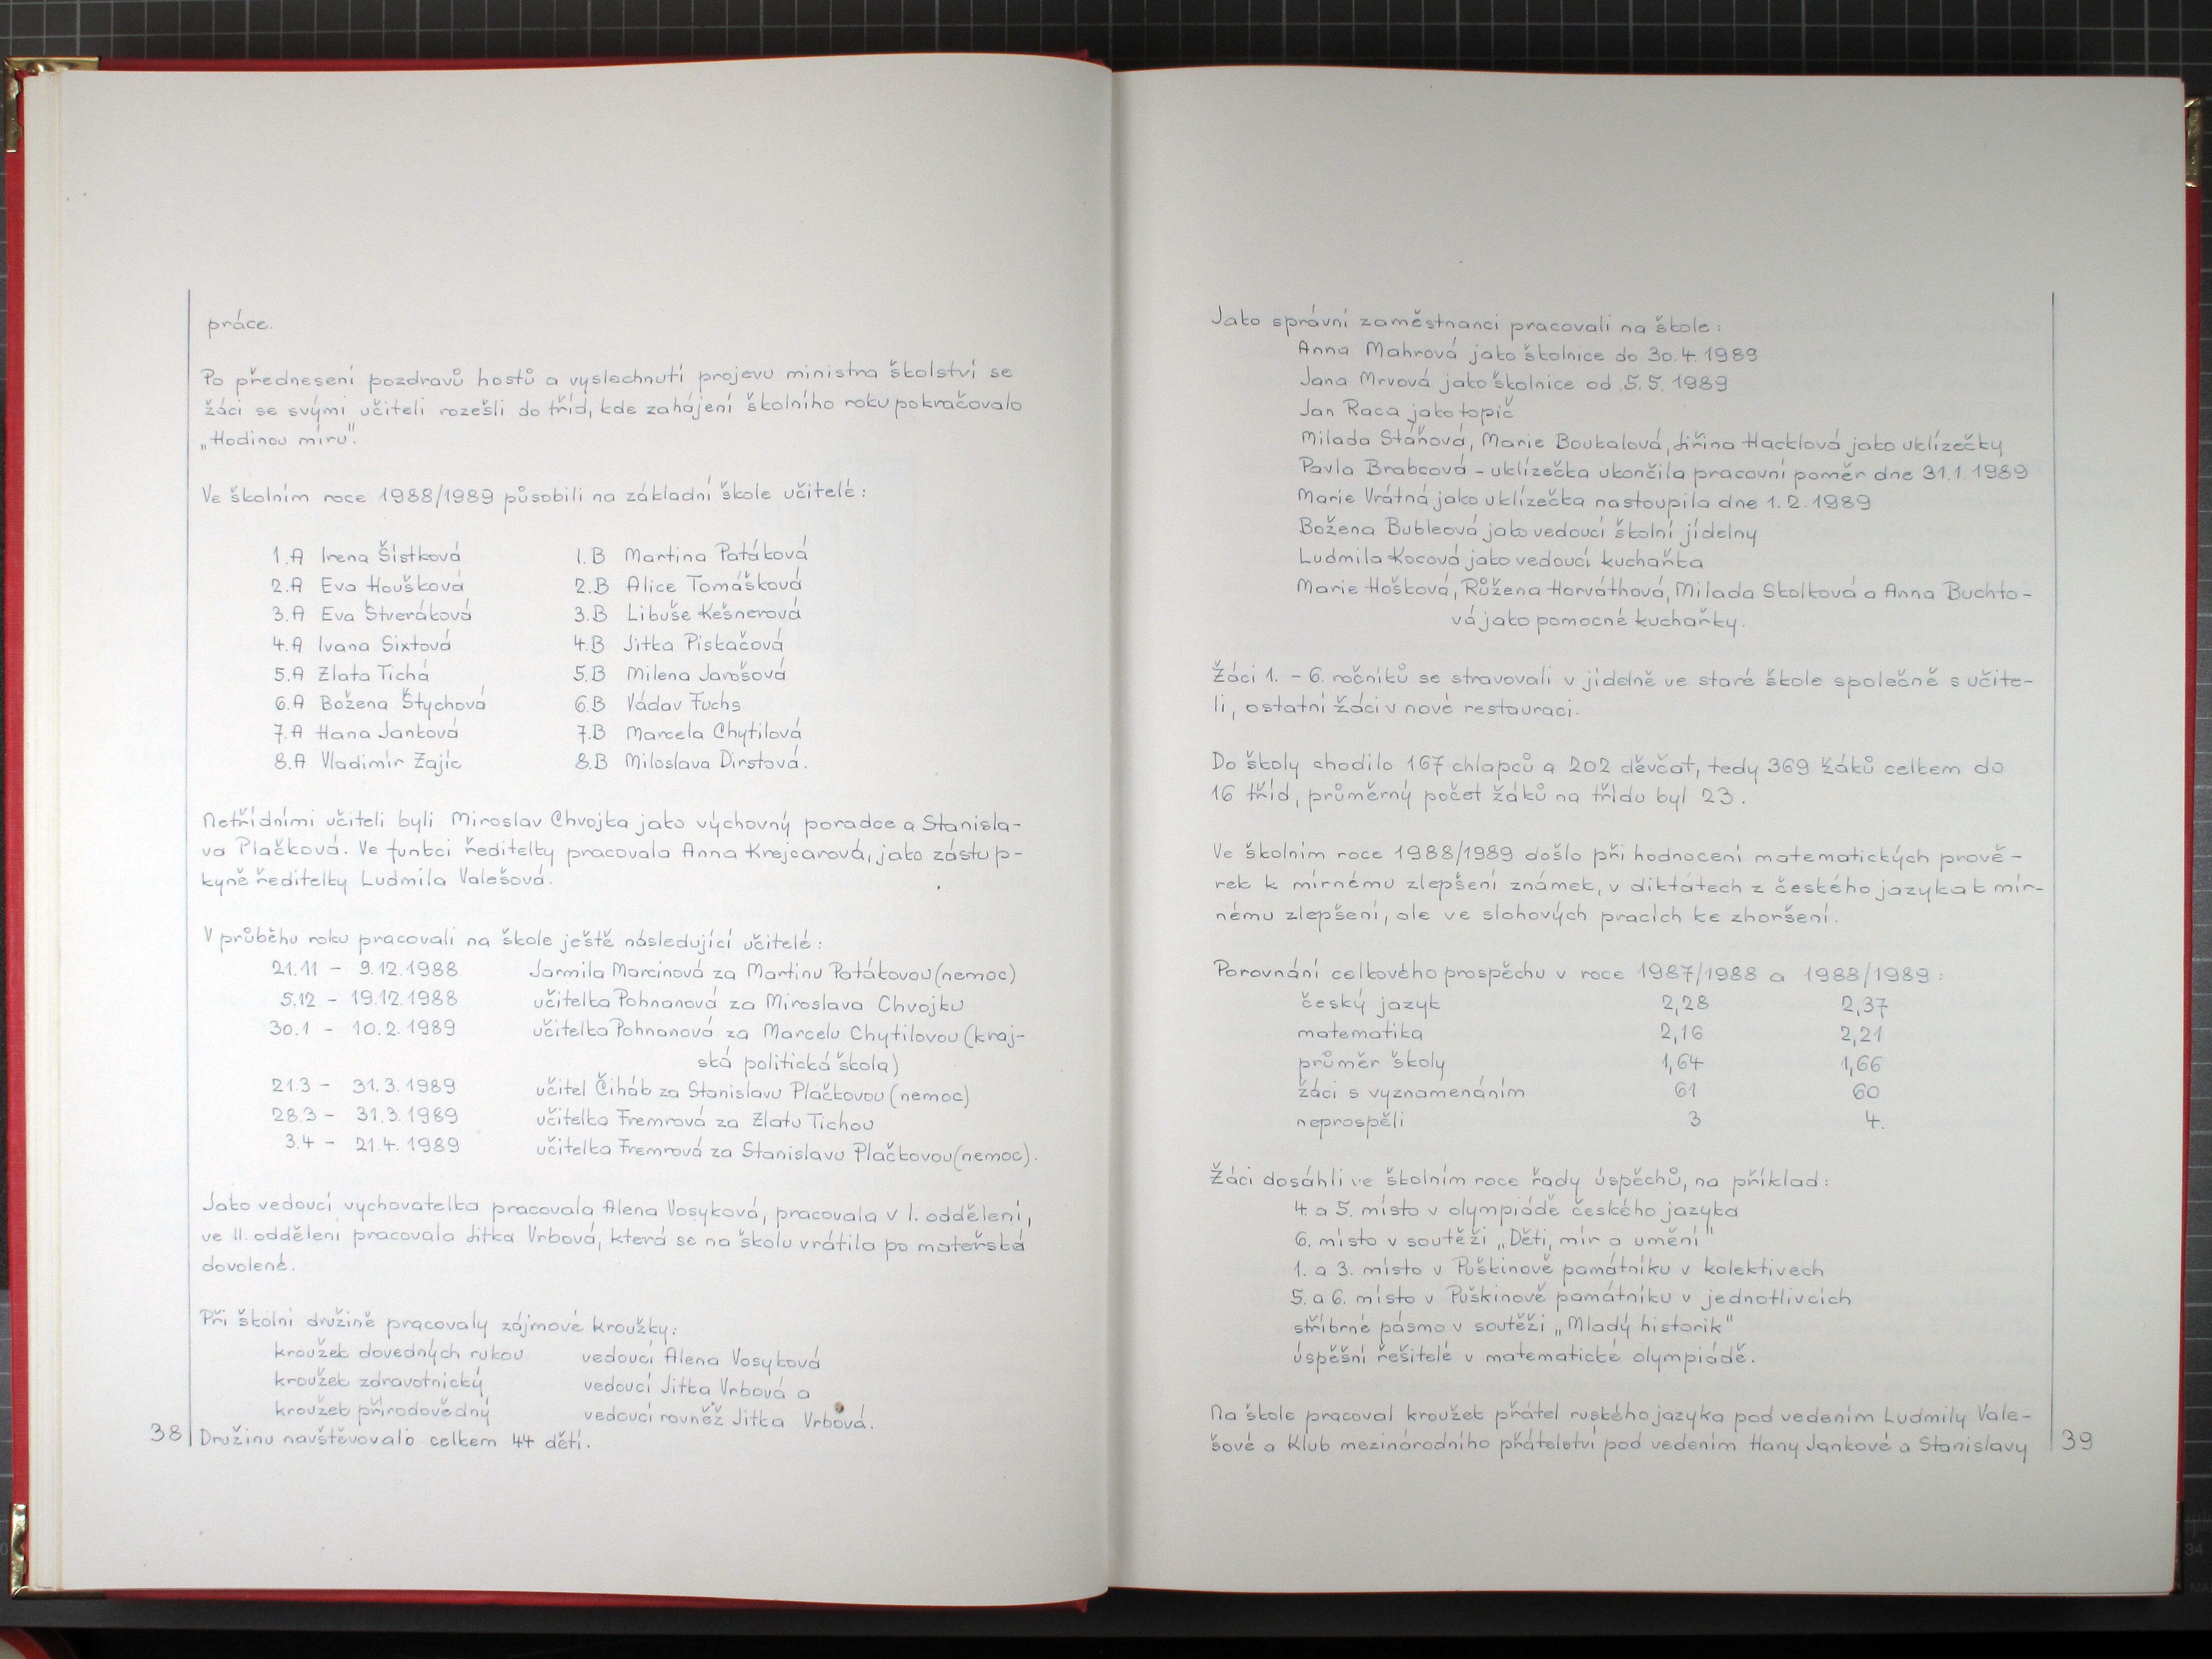 práce.
Po přednesení pozdravů hostů a vyslechnutí projevu ministra školství se
žáci se svými učiteli rozešli do tříd, kde zahájení školního roku pokračovalo
„Hodinou míru".
Ve školním roce 1988/1989 působili na základní škole učitelé:
1.A Irena Šístková 1.B Martina Patáková
2.A Eva Houšková 2.B Alice Tomášková
3.A Eva Štveráková 3.B Libuše Kešnerová
4.A Ivana Sixtová 4.B Jitka Piskačová
5.A Zlata Tichá 5.B Milena Jarošová
6.A Božena Štychová 6.B Václav Fuchs
7.A Hana Janková 7.B Marcela Chytilová
8.A Vladimír Zajíc 8.B Miloslava Dirstová.
Netřídními učiteli byli Miroslav Chvojka jako výchovný poradce a Stanisla-
va Plačková. Ve funkci ředitelky pracovala Anna Krejcarová, jako zástup-
kyně ředitelky Ludmila Valešová.
V průběhu roku pracovali na škole ještě následující učitelé:
21.11 - 9.12.1988 Jarmila Marcinová za Martinu Patákovou (nemoc)
5.12 - 19.12.1988 učitelka Pohnanová za Miroslava Chvojku
30.1 - 10.2.1989 učitelka Pohnanová za Marcelu Chytilovou (kraj-
ská politická škola)
21.3 - 31.3.1989 učitel Čiháb za Stanislavu Plačkovou (nemoc)
28.3 - 31.3.1989 učitelka Fremrová za Zlatu Tichou
3.4 - 21.4.1989 učitelka Fremrová za Stanislavu Plačkovou (nemoc).
Jako vedoucí vychovatelka pracovala Alena Vosyková, pracovala v I. oddělení,
ve II. oddělení pracovala Jitka Vrbová, která se na školu vrátila po mateřské
dovolené.
Při školní družině pracovaly zájmové kroužky:
kroužek dovedných rukou vedoucí Alena Vosyková
kroužek zdravotnický vedoucí Jitka Vrbová a
kroužek přírodovědný vedoucí rovněž Jitka Vrbová.
38 Družinu navštěvovalo celkem 44 dětí.
Jako správní zaměstnanci pracovali na škole:
Anna Mahrová jako školnice do 30.4.1989
Jana Mrvová jako školnice od 5.5.1989
Jan Raca jako topič
Milada Stáňová, Marie Boukalová, Jiřina Hacklová jako uklízečky
Pavla Brabcová - uklízečka ukončila pracovní poměr dne 31.1.1989
Marie Vrátná jako uklízečka nastoupila dne 1.2.1989
Božena Bubleová jako vedoucí školní jídelny
Ludmila Kocová jako vedoucí kuchařka
Marie Hošková, Růžena Horváthová, Milada Skolková a Anna Buchto-
vá jako pomocné kuchařky.
Žáci 1. - 6. ročníků se stravovali v jídelně ve staré škole společně s učite-
li, ostatní žáci v nové restauraci.
Do školy chodilo 167 chlapců a 202 děvčat, tedy 369 žáků celkem do
16 tříd, průměrný počet žáků na třídu byl 23.
Ve školním roce 1988/1989 došlo při hodnocení matematických prově-
rek k mírnému zlepšení známek, v diktátech z českého jazyka k mír-
nému zlepšení, ale ve slohových pracích ke zhoršení.
Porovnání celkového prospěchu v roce 1987/1988 a 1988/1989:
český jazyk 2,28 2,37
matematika 2,16 2,21
průměr školy 1,64 1,66
žáci s vyznamenáním 61 60
neprospěli 3 4.
Žáci dosáhli ve školním roce řady úspěchů, na příklad:
4. a 5. místo v olympiádě českého jazyka
6. místo v soutěži „Děti, mír a umění"
1. a 3. místo v Puškinově památníku v kolektivech
5. a 6. místo v Puškinově památníku v jednotlivcích
stříbrné pásmo v soutěži „Mladý historik"
úspěšní řešitelé v matematické olympiádě.
Na škole pracoval kroužek přátel ruského jazyka pod vedením Ludmily Vale-
šové a Klub mezinárodního přátelství pod vedením Hany Jankové a Stanislavy 39